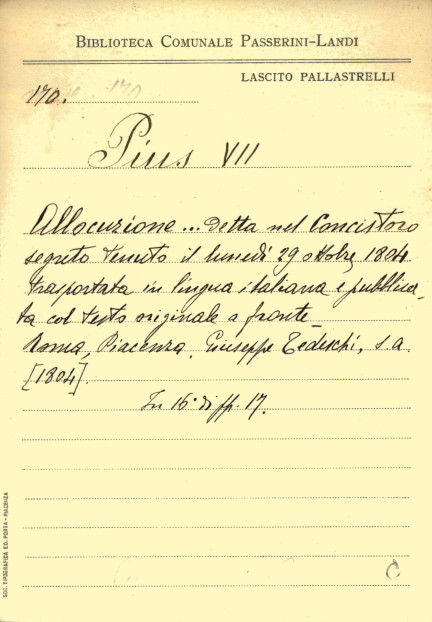 BIBLIOTECA COMUNALE PASSERINI-LANDI
LASCITO PALLASTRELLI
170. 170
Pius VII
Allocuzione ... detta nel Concistoro
segreto tenuto il lunedì 29 ottobre 1804
trasportata in lingua italiana e pubblica-
ta col testo originale a fronte
Roma, Piacenza, Giuseppe Tedeschi, s. a.
[1804].
In 16° di pp. 17.
C
SOC. TIPOGRAFICA ED. PORTA - PIACENZA